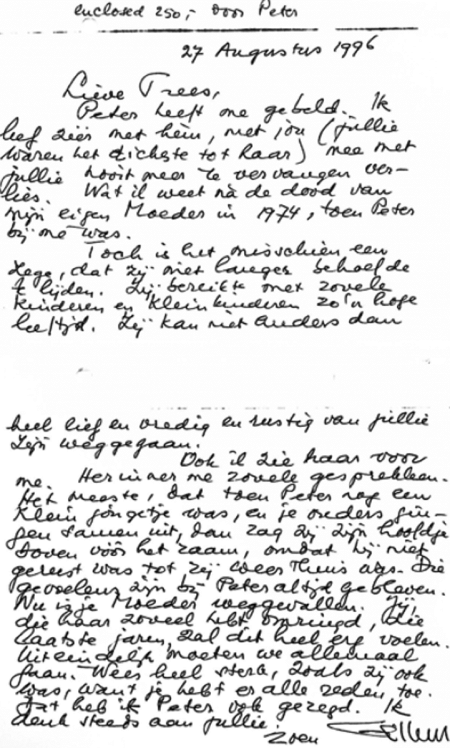 enclosed 250,- voor Peter
27 Augustus 1996
Lieve Trees,
Peter heeft me gebeld. Ik
leef zéér met hem, met jou (jullie
waren het dichtste tot haar) mee met
jullie nooit meer te vervangen ver-
lies. Wat ik weet ná de dood van
mijn eigen Moeder in 1974, toen Peter
bij me was.
Toch is het misschien een
zege, dat zij niet langer behoefde
te lijden. Zij bereikte met zovele
kinderen en kleinkinderen zo'n hoge
leeftijd. Zij kan niet anders dan
heel lief en vredig en rustig van jullie
zijn weggegaan.
Ook ik zie haar voor
me. Herinner me zovele gesprekken.
Het meeste, dat toen Peter nog een
klein jongetje was, en je ouders gin-
gen samen uit, dan zag zij zijn hoofdje
boven vóór het raam, omdat hij niet
gerust was tot zij weer thuis was. Die
gevoelens zijn bij Peter altijd gebleven.
Nu is je Moeder weggevallen. Jij,
die haar zoveel hebt omringd, die
laatste jaren, zal dit heel erg voelen.
Uiteindelijk moeten we allemaal
gaan. Wees heel sterk, zoals zij ook
was, want je hebt er alle reden toe.
Dat heb ik Peter ook gezegd. Ik
denk steeds aan jullie.
Zoen